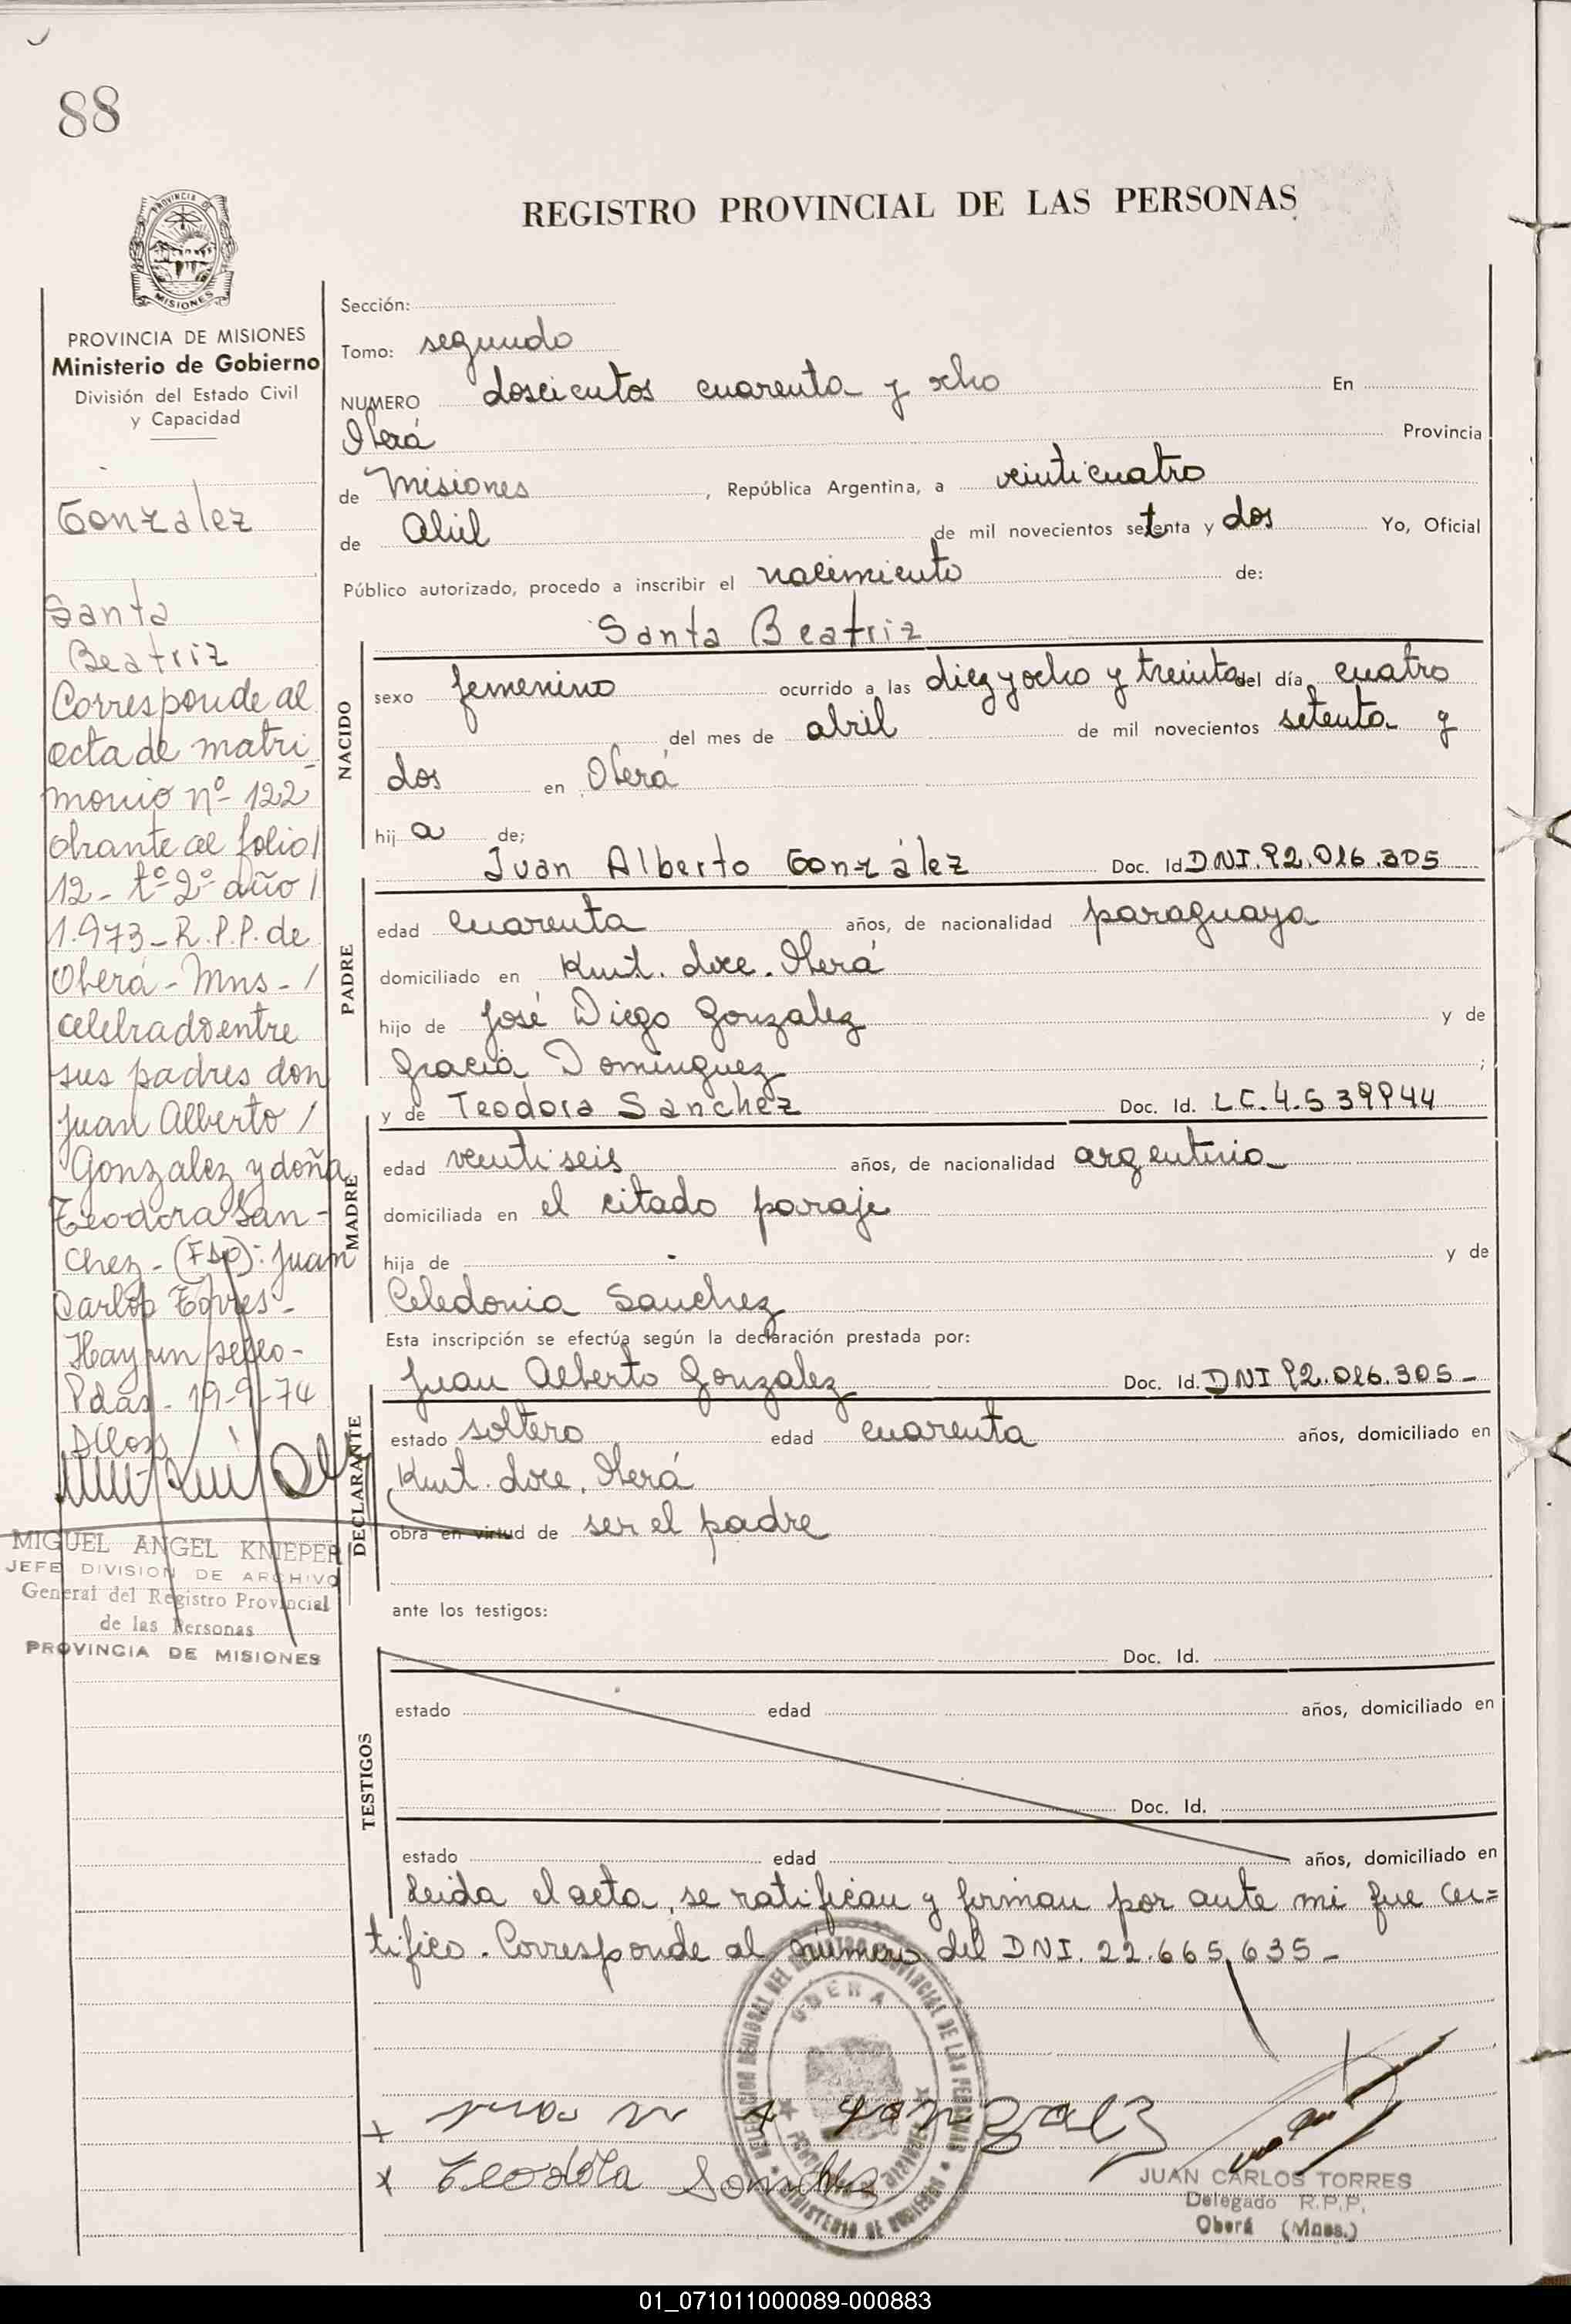 88
REGISTRO PROVINCIAL DE LAS PERSONAS
PROVINCIA DE MISIONES
Ministerio de Gobierno
División del Estado Civil
y Capacidad
Gonzalez
Santa
Beatriz
Corresponde al
acta de matri-
monio nº 122
obrante al folio/
12- tº 2º año/
1.973- R.P.P. de
Oberá- Mns-/
celebrado entre
sus padres don
Juan Alberto/
Gonzalez y doña
Teodora San-
chez- (Fdo): Juan
Carlos Torres-
Hay un sello-
Pdas- 19-9-74
MIGUEL ANGEL KNIEPER
JEFE DIVISION DE ARCHIVO
General del Registro Provincial
de las Personas
PROVINCIA DE MISIONES
Sección:
Tomo: segundo
NUMERO doscientos cuarenta y ocho En
Oberá Provincia
de Misiones, República Argentina, a veinticuatro
de Abril de mil novecientos setenta y dos Yo, Oficial
Público autorizado, procedo a inscribir el nacimiento de:
Santa Beatriz
NACIDO
sexo femenino ocurrido a las diez y ocho y treinta del día cuatro
del mes de abril de mil novecientos setenta y
dos en Oberá
hij a de;
Juan Alberto González Doc. Id. DNI. 92.016.305
PADRE
edad cuarenta años, de nacionalidad paraguaya
domiciliado en Kmt. doce. Oberá
hijo de José Diego Gonzalez y de
Gracia Dominguez;
y de Teodora Sanchez Doc. Id. LC. 4.539944
MADRE
edad veintiseis años, de nacionalidad argentina
domiciliada en el citado paraje
hija de - y de
Celedonia Sanchez
Esta inscripción se efectúa según la declaración prestada por:
Juan Alberto Gonzalez Doc. Id. DNI 92.016.305-
DECLARANTE
estado soltero edad cuarenta años, domiciliado en
Kmt. doce. Oberá
obra en virtud de ser el padre
ante los testigos:
Doc. Id.
TESTIGOS
estado edad años, domiciliado en
Doc. Id.
estado edad años, domiciliado en
Leida el acta, se ratifican y firman por ante mi que cer=
tifico. Corresponde al número del DNI. 22.665.635-
DELEGACION REGIONAL DEL REGISTRO PROVINCIAL DE LAS PERSONAS
OBERA
PROVINCIA DE MISIONES
MINISTERIO DE GOBIERNO
x Gonzalez
x Teodora Sanchez
JUAN CARLOS TORRES
Delegado R.P.P.
Oberá (Mnes.)
01_071011000089-000883